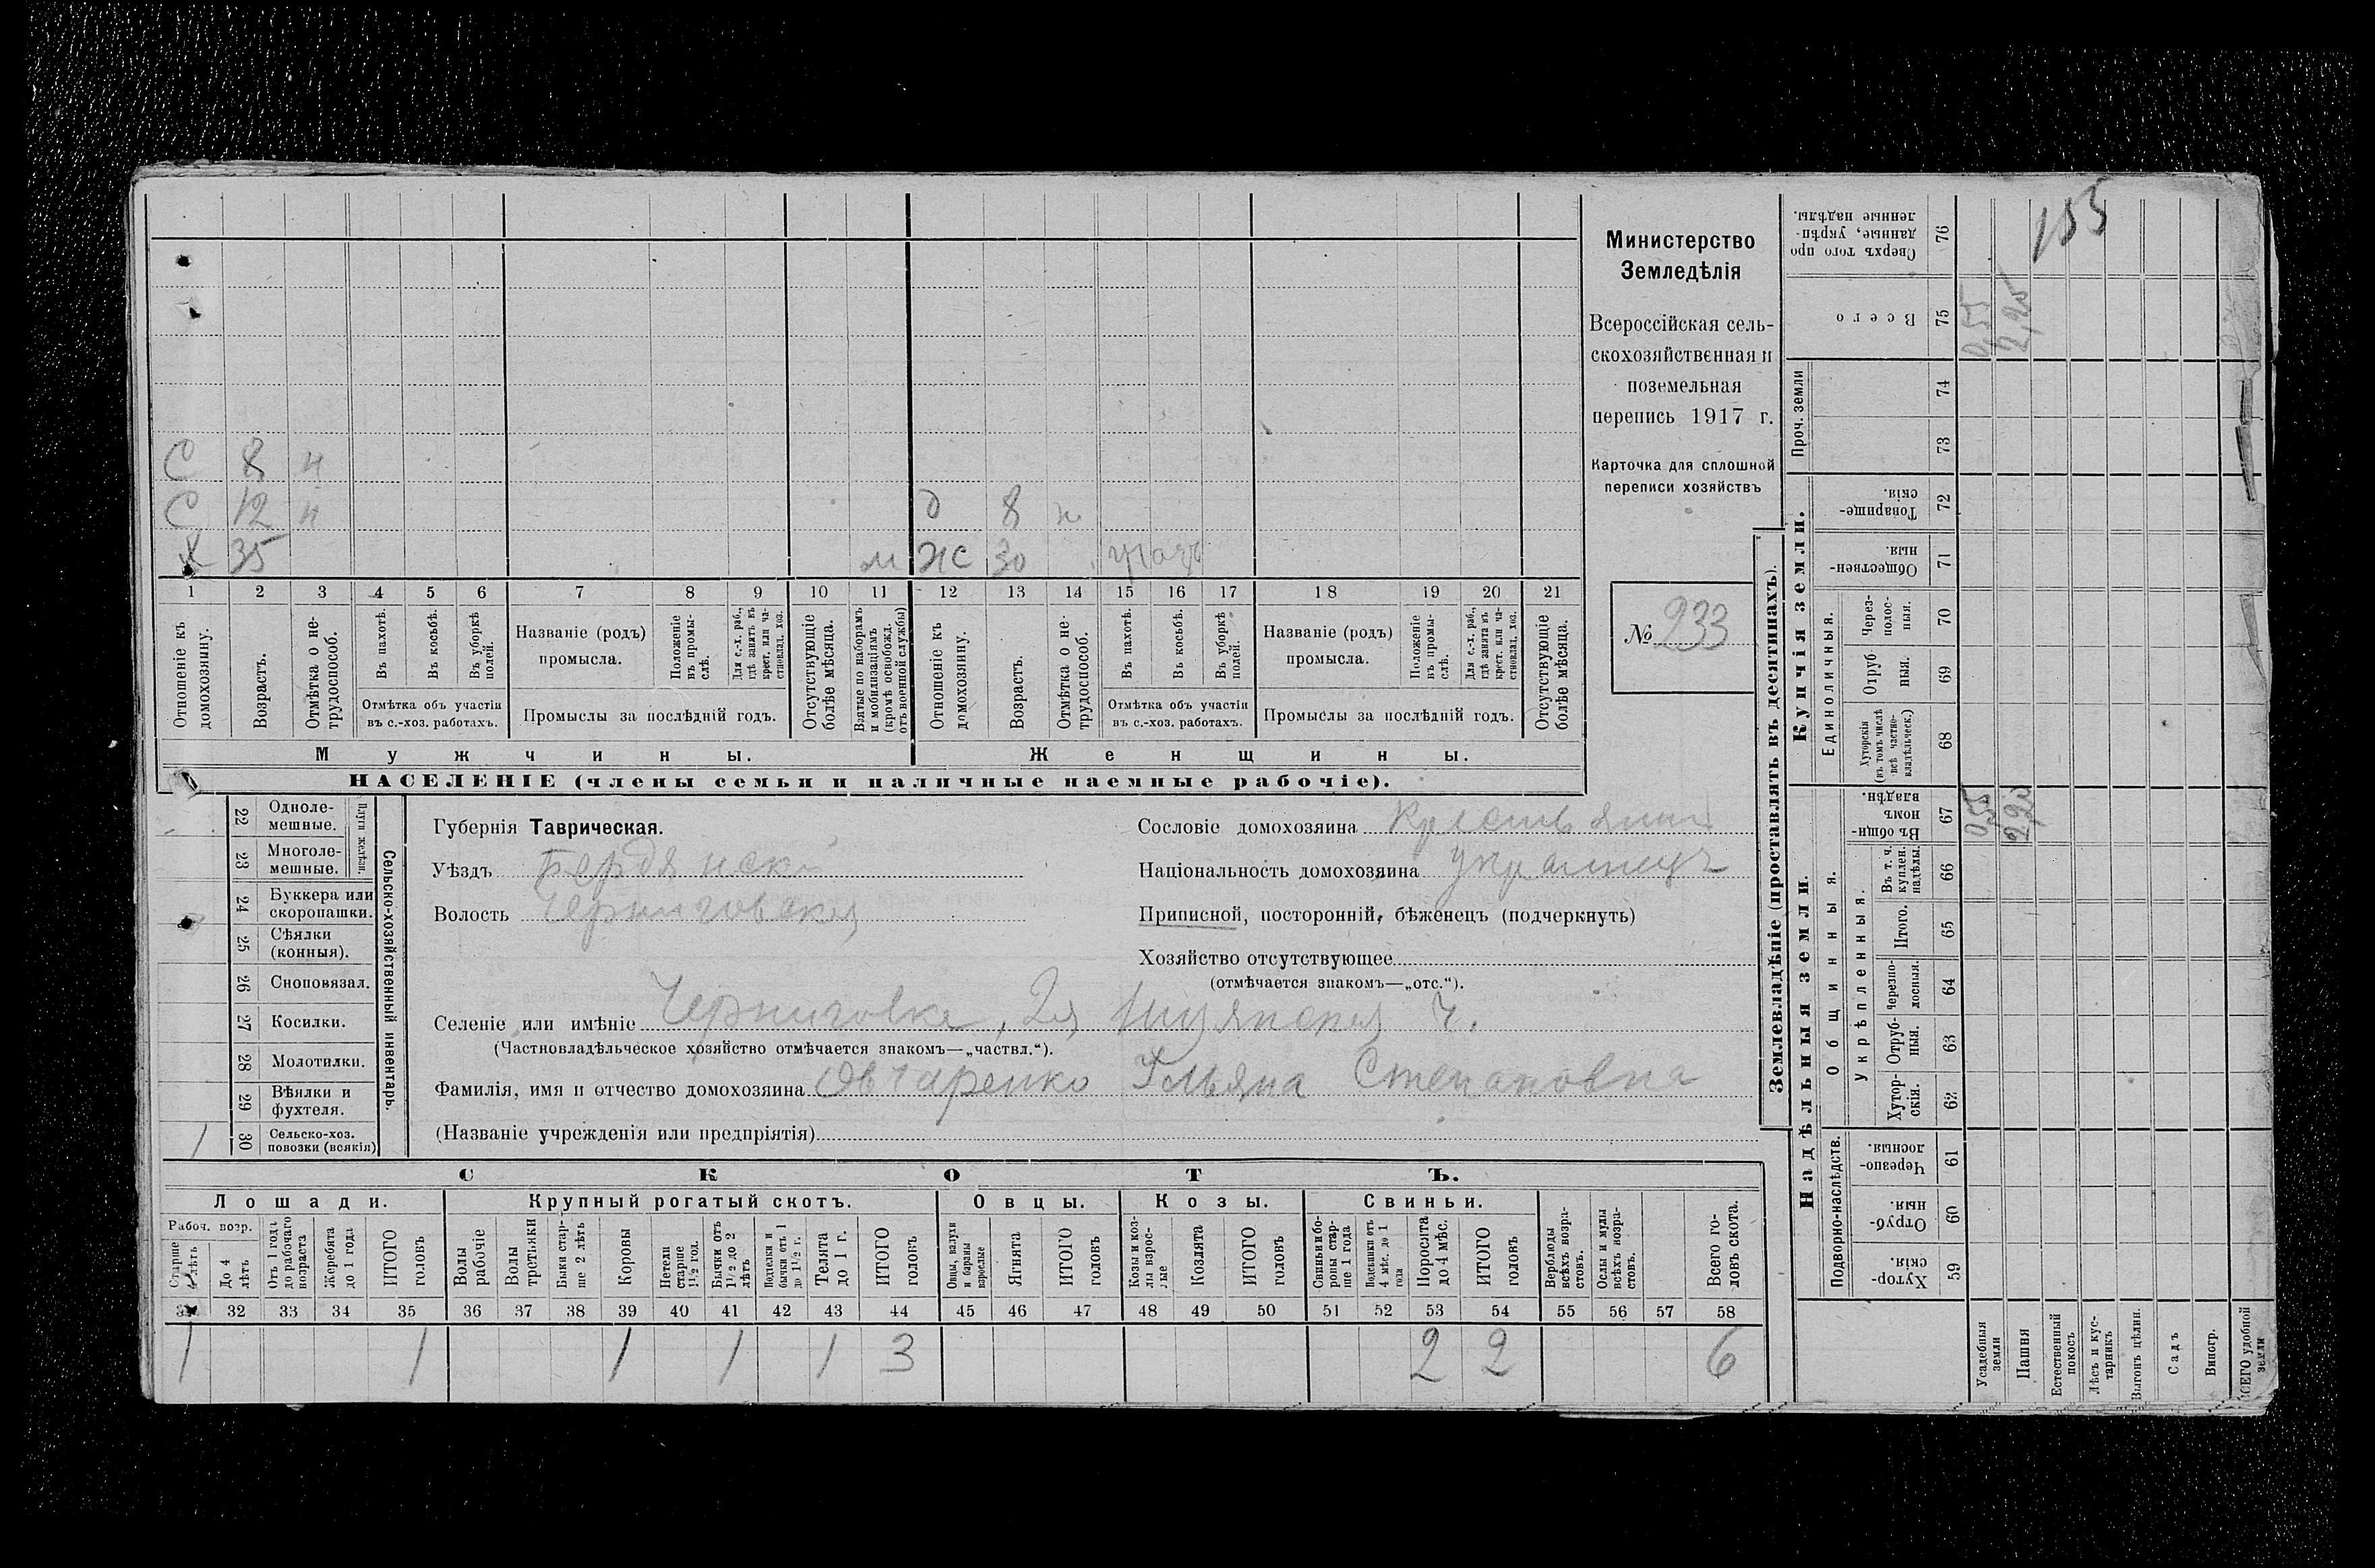 155
Министерство
Земледѣлія
Всероссійская сель-
скохозяйственная и
поземельная
перепись 1917 г.
Карточка для сплошной
переписи хозяйствъ
№ 933
С 8 н
С 12 н д 8 н
Х 35 м ж 30
1 2 3 4 5 6 7 8 9 10 11 12 13 14 15 16 17 18 19 20 21
Отношеніе къ домохозяину.
Возрастъ.
Отмѣтка о не-трудоспособ.
Въ пахотѣ.
Въ косьбѣ.
Въ уборкѣ полей.
Отмѣтка объ участіи
въ с.-хоз. работахъ.
Названіе (родъ)
промысла.
Положеніе въ промы-слѣ.
Для с.-х. раб., гдѣ занятъ въ крест. или ча-стновлад. хоз.
Промыслы за послѣдній годъ.
Отсутствующіе болѣе мѣсяца.
Взятые по наборамъ и мобилизаціямъ (кромѣ освобожд. отъ военной службы)
Отношеніе къ домохозяину.
Возрастъ.
Отмѣтка о не-трудоспособ.
Въ пахотѣ.
Въ косьбѣ.
Въ уборкѣ полей.
Отмѣтка объ участіи
въ с.-хоз. работахъ.
Названіе (родъ)
промысла.
Положеніе въ промы-слѣ.
Для с.-х. раб., гдѣ занята въ крест. или ча-стновлад. хоз.
Промыслы за послѣдній годъ.
Отсутствующіе болѣе мѣсяца.
Мужчины. Женщины.
НАСЕЛЕНІЕ (члены семьи и наличные наемные рабочіе).
22 Одноле-мешные.
23 Многоле-мешные.
Плуги желѣзн.
24 Буккера или скоропашки.
25 Сѣялки (конныя).
26 Сноповязал.
27 Косилки.
28 Молотилки.
29 Вѣялки и фухтеля.
30 Сельско-хоз. повозки (всякія) 1
Сельско-хозяйственный инвентарь.
Губернія Таврическая.
Уѣздъ Бердянскій
Волость Черниговская
Сословіе домохозяина крестьянинъ
Національность домохозяина украинецъ
Приписной, посторонній, бѣженецъ (подчеркнуть)
Хозяйство отсутствующее
(отмѣчается знакомъ—„отс.“).
Селеніе или имѣніе Черниговка, 2я ч.
(Частновладѣльческое хозяйство отмѣчается знакомъ—„частвл.“).
Фамилія, имя и отчество домохозяина Овчаренко Ульяна Степановна
(Названіе учрежденія или предпріятія)
СКОТЪ.
Лошади. Крупный рогатый скотъ. Овцы. Козы. Свиньи.
Рабоч. возр.
Старше 4 лѣтъ
До 4 лѣтъ
Отъ 1 года до рабочаго возраста
Жеребята до 1 года
ИТОГО головъ
Волы рабочіе
Волы третьяки
Быки стар-ше 2 лѣтъ
Коровы
Нетели старше 1½ год.
Бычки отъ 1½ до 2 лѣтъ
Подтелки и бычки отъ 1 до 1½ г.
Телята до 1 г.
ИТОГО головъ
Овцы, валухи и бараны взрослые
Ягнята
ИТОГО головъ
Козы и коз-лы взрос-лые
Козлята
ИТОГО головъ
Свиньи и бо-ровы стар-ше 1 года
Подсвинки отъ 4 мѣс. до 1 года
Поросята до 4 мѣс.
ИТОГО головъ
Верблюды всѣхъ возра-стовъ.
Ослы и мулы всѣхъ возра-стовъ.
Всего го-ловъ скота.
31 32 33 34 35 36 37 38 39 40 41 42 43 44 45 46 47 48 49 50 51 52 53 54 55 56 57 58
1 1 1 1 1 3 2 2 6
Землевладѣніе (проставлять въ десятинахъ).
Надѣльныя земли.
Купчія земли.
Проч. земли
Подворно-наслѣдств.
Общинныя.
Укрѣпленныя.
Единоличныя.
Хутор-скія. 59
Отруб-ныя. 60
Черезпо-лосныя. 61
Хутор-скія. 62
Отруб-ныя. 63
Черезпо-лосныя. 64
Итого. 65
Въ т. ч. куплен. надѣлы. 66
Въ общин-номъ владѣн. 67
Хуторскія (въ томъ числѣ всѣ частно-владѣльческ.) 68
Отруб ныя. 69
Через-полос-ныя. 70
Обществен-ныя. 71
Товарище-скія. 72
73
74
Всего 75
Сверхъ того про данные, укрѣп-ленные надѣлы. 76
Усадебныя земли 0,55 0,55
Пашня 2,20 2,20
Естественный покосъ
Лѣсъ и кус-тарникъ
Выгонъ цѣлин.
Садъ
Виногр.
ВСЕГО удобной земли